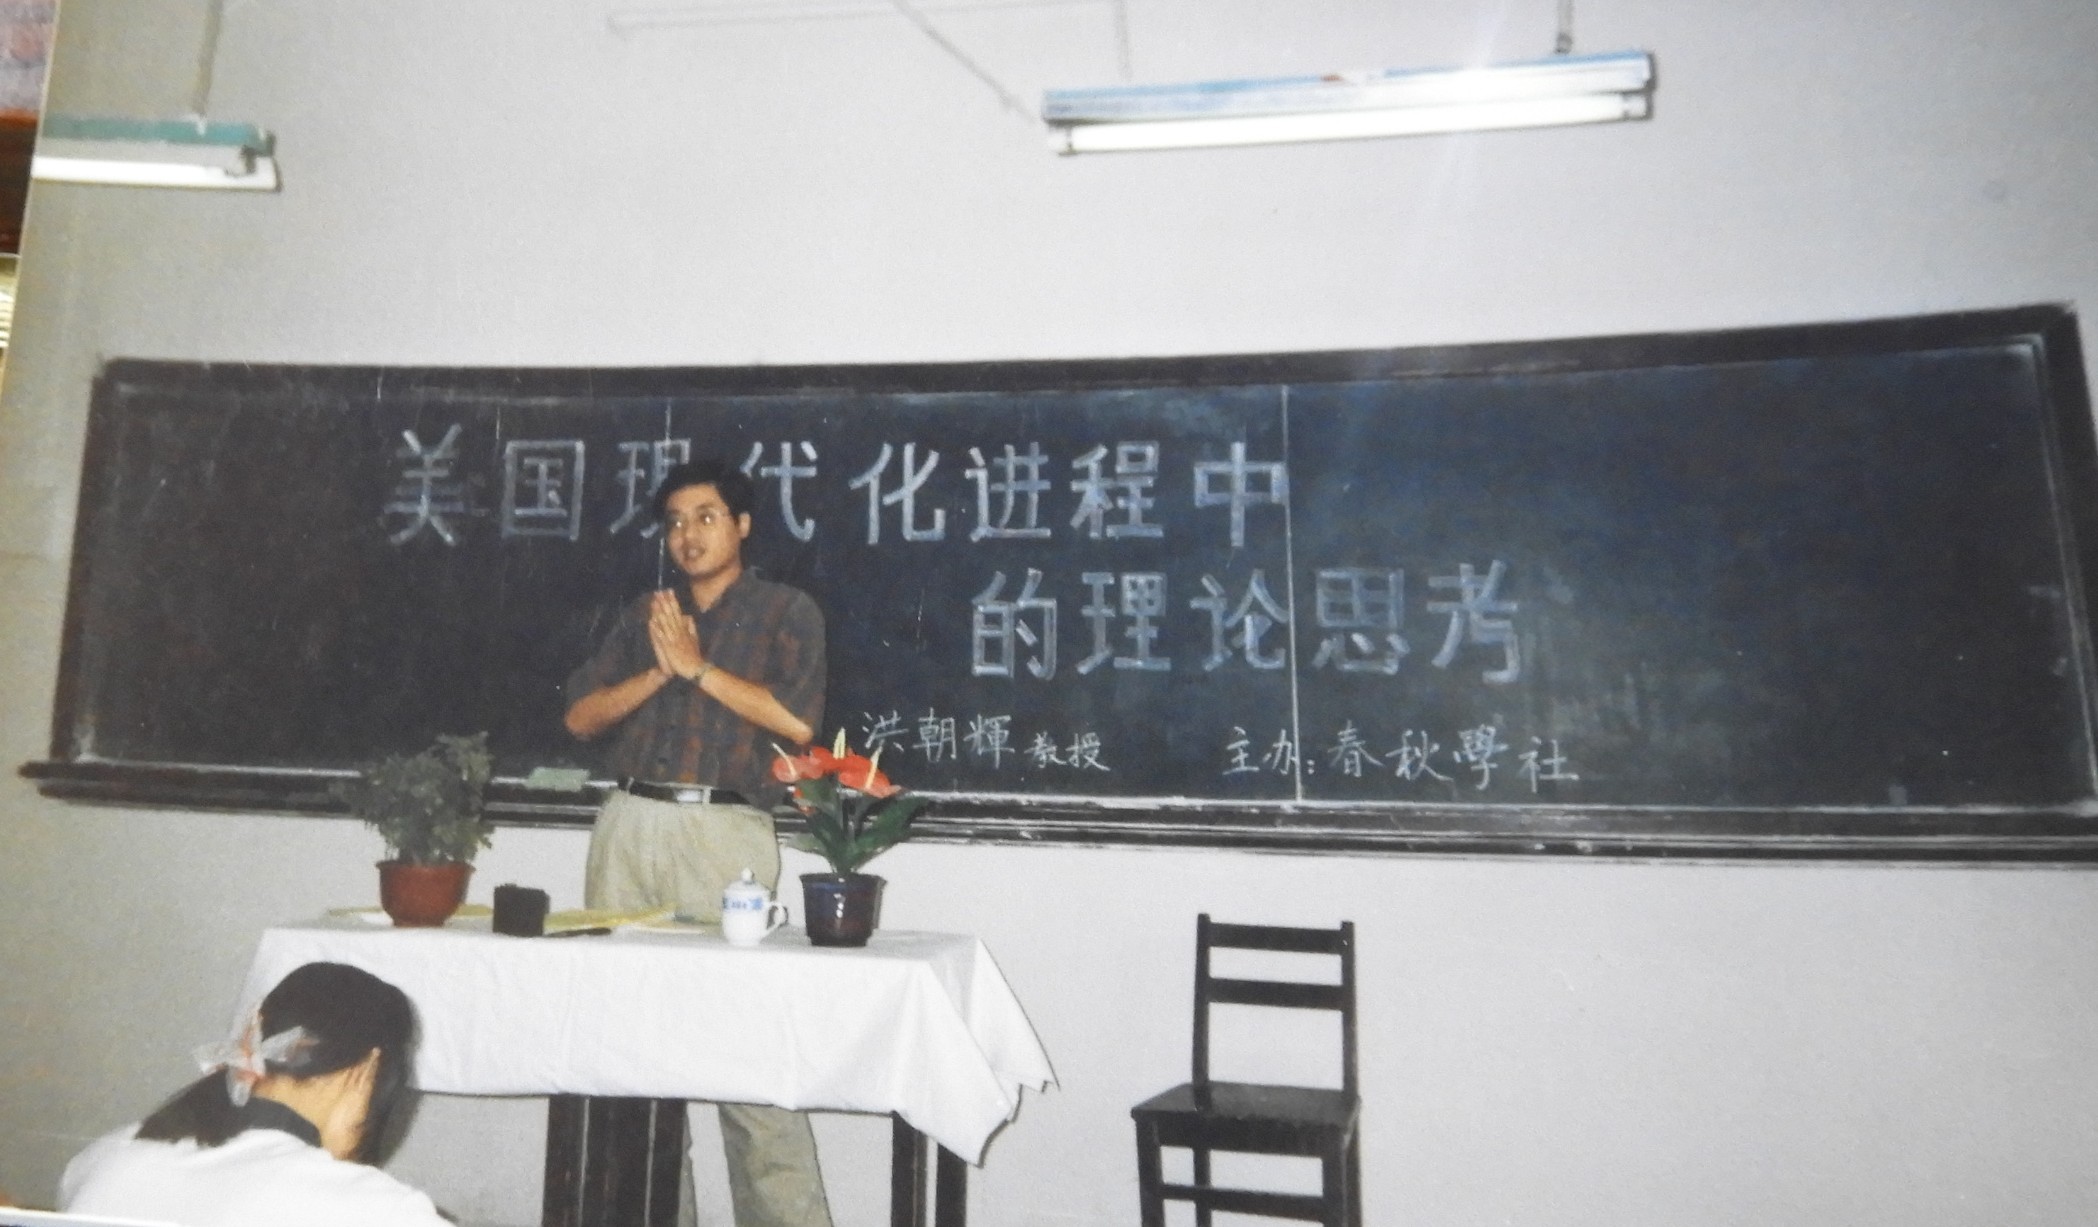 美国现代化进程中
的理论思考
洪朝輝教授 主办:春秋學社